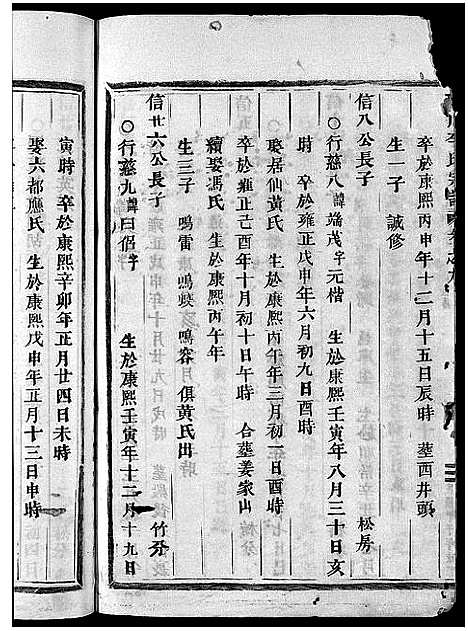 氏宗譜卷之九
卒於康熙丙申年十二月十五日辰時 葬西井頭
生一子 誠修
信八公長子 松房
○行慈八諱端茂字元楷 生於康熙壬寅年八月三十日亥
時 卒於雍正戊申年六月初九日酉時
娶居仙黃氏 生於康熙丙午年三月初一日酉時
卒於雍正己酉年十月初十日午時 合葬姜家山
續娶馮氏 生於康熙丙午年
生三子 鳴雷 鳴 鳴容 俱黃氏出
信廿六公長子 竹分
○行慈九諱曰侶字 生於康熙壬寅年十二月十九日
寅時 卒於康熙辛卯年正月廿四日未時
娶六都應氏 生於康熙戊申年正月十三日申時